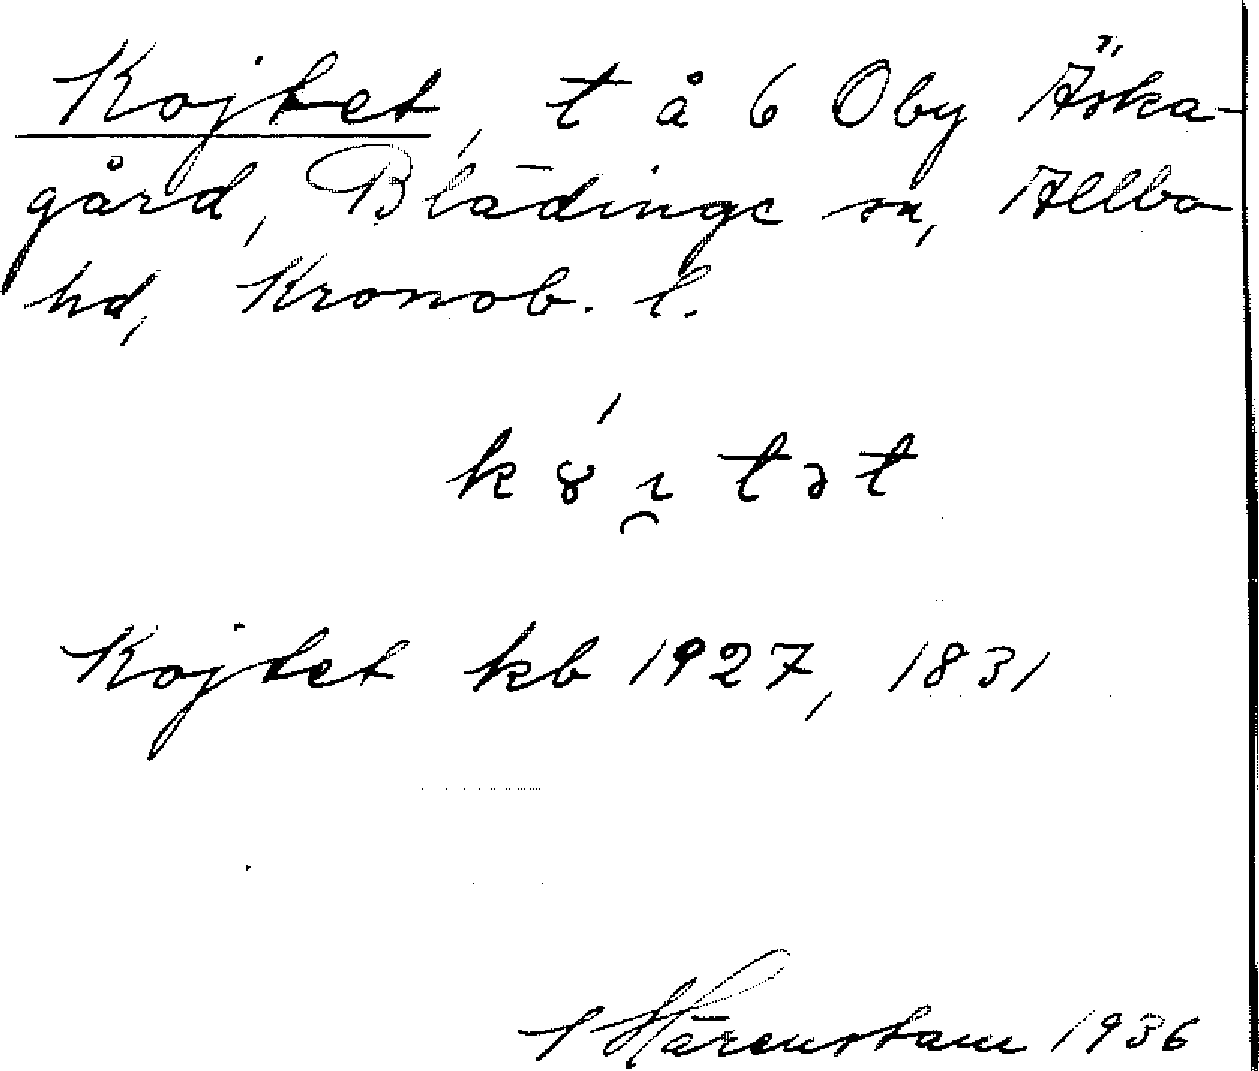 Kojtet, t å 6 Oby Äska-
gård, Blädinge sn, Allbo
hd, Kronob. l.
k8́ı̯tət
Kojtet kb 1927, 1831
Härenstam 1936